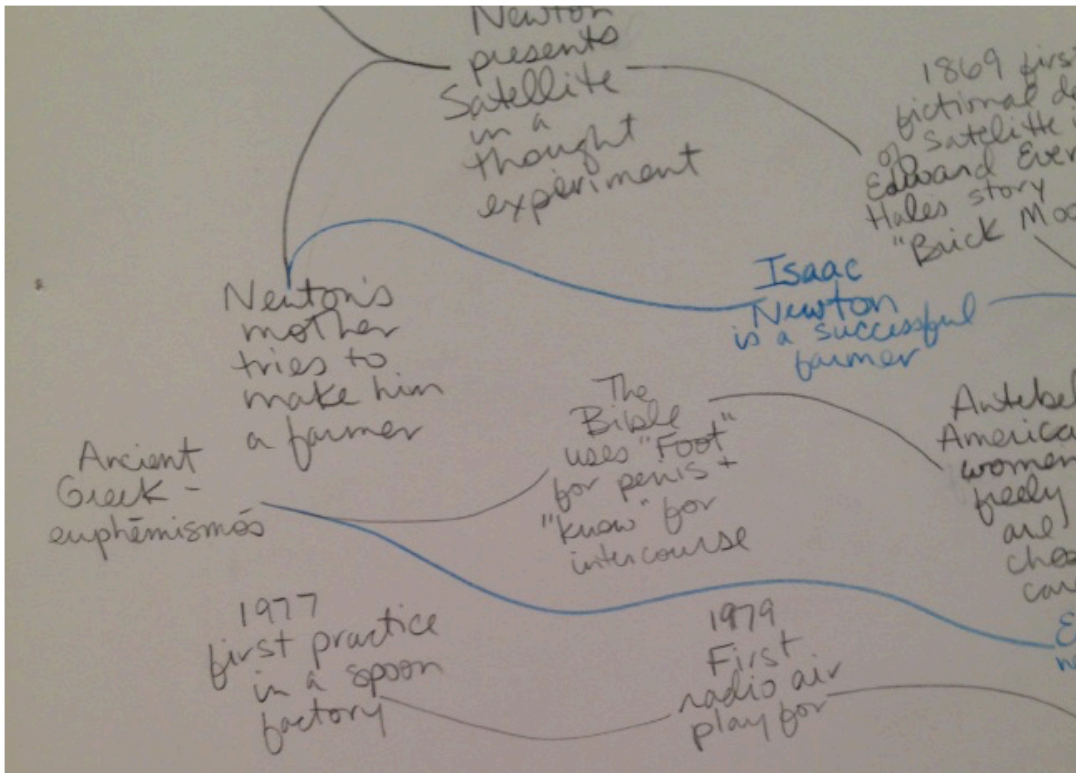 Newton
presents
Satellite
in a
thought
experiment
1869 first
fictional
of Satelitte
Edward
Hales story
"Brick
Newton's
mother
tries to
make him
a farmer
Isaac
Newton
is a successful
farmer
The
Bible
uses "Foot"
for penis +
"know" for
intercourse
America
women
freely
are
Ancient
Greek -
euphēmismós
1977
first practice
in a spoon
factory
1979
First
radio air
play for